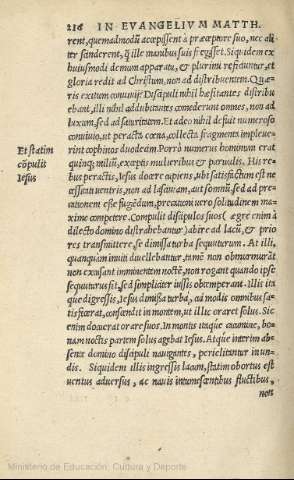 216 IN EVANGELIVM MATTH.
rent, quemadmodũ accepissent à præceptore suo, nec ali
ter samderent, ꝗ̃ ille manibus suis fregisset. Siquidem ex
huiusmodi demum apparatu, & plurimi reficiuntur, et
gloria redit ad Christum, non ad distribuentem. Quæ-
ris exitum conuiuij? Discipuli nihil hæsitantes distribu
ebant, illi nihil addubitantes comederunt omnes, non ad
luxum, sed ad saturitatem. Et adeo nihil defuit numeroso
conuiuio, ut peracta cœna, collecta fragmenta impleue-
rint cophinos duodecim. Porrò numerus hominum erat
quinq; millium, exceptis mulieribus & paruulis. His re-
bus peractis, Iesus docere sapiens, ubi satisfactum est ne
cessitati uentris, non ad lasciuiam, aut somnũ, sed ad pre-
cationem esse fugiendum, precationi uero solitudinem ma-
xime competere. Compulit discipulos suos (ægre enim à
dilecto domino distrahebantur) abire ad lacũ, & prio
res transmittere, se dimissa turba sequuturum. At illi,
quanquam inuiti diuellebantur, tamẽ non obmurmurãt
non excusant imminentem noctẽ, non rogant quando ipse
sequuturus sit, sed simpliciter iussis obtemperant. Illis ita
que digressis, Iesus dimissa turba, ad modis omnibus sa-
tisfecerat, conscendit in montem, ut illic oraret solus. Sic
enim docuerat orare suos. In montis itaque cacumine, bo-
nam noctis partem solus agebat Iesus. Atque interim ab-
sente domino discipuli nauigantes, periclitantur in un-
dis. Siquidem illis ingressis lacum, statim obortus est
uentus aduersus, ac nauis intumescentibus fluctibus,
non
Et statim
cõpulit
Iesus
Ministerio de Educación, Cultura y Deporte